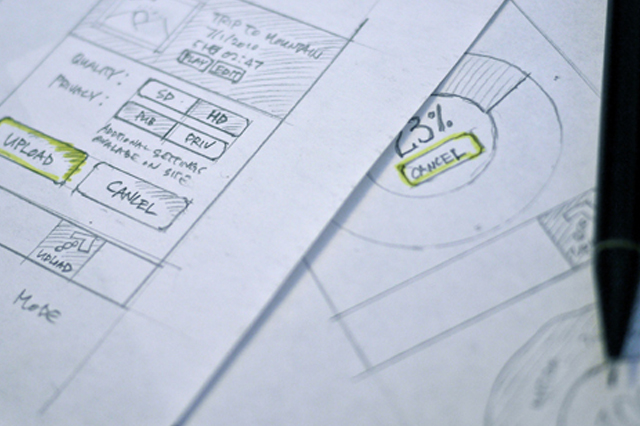 TRIP TO MOUNTAIN
7/1/2010
02:47
PLAY EDIT
QUALITY:
SD HD
PRIVACY:
PUB PRIV
ADDITIONAL SETTINGS
AVAILABLE ON SITE.
UPLOAD
CANCEL
UPLOAD
MODE
23%
CANCEL